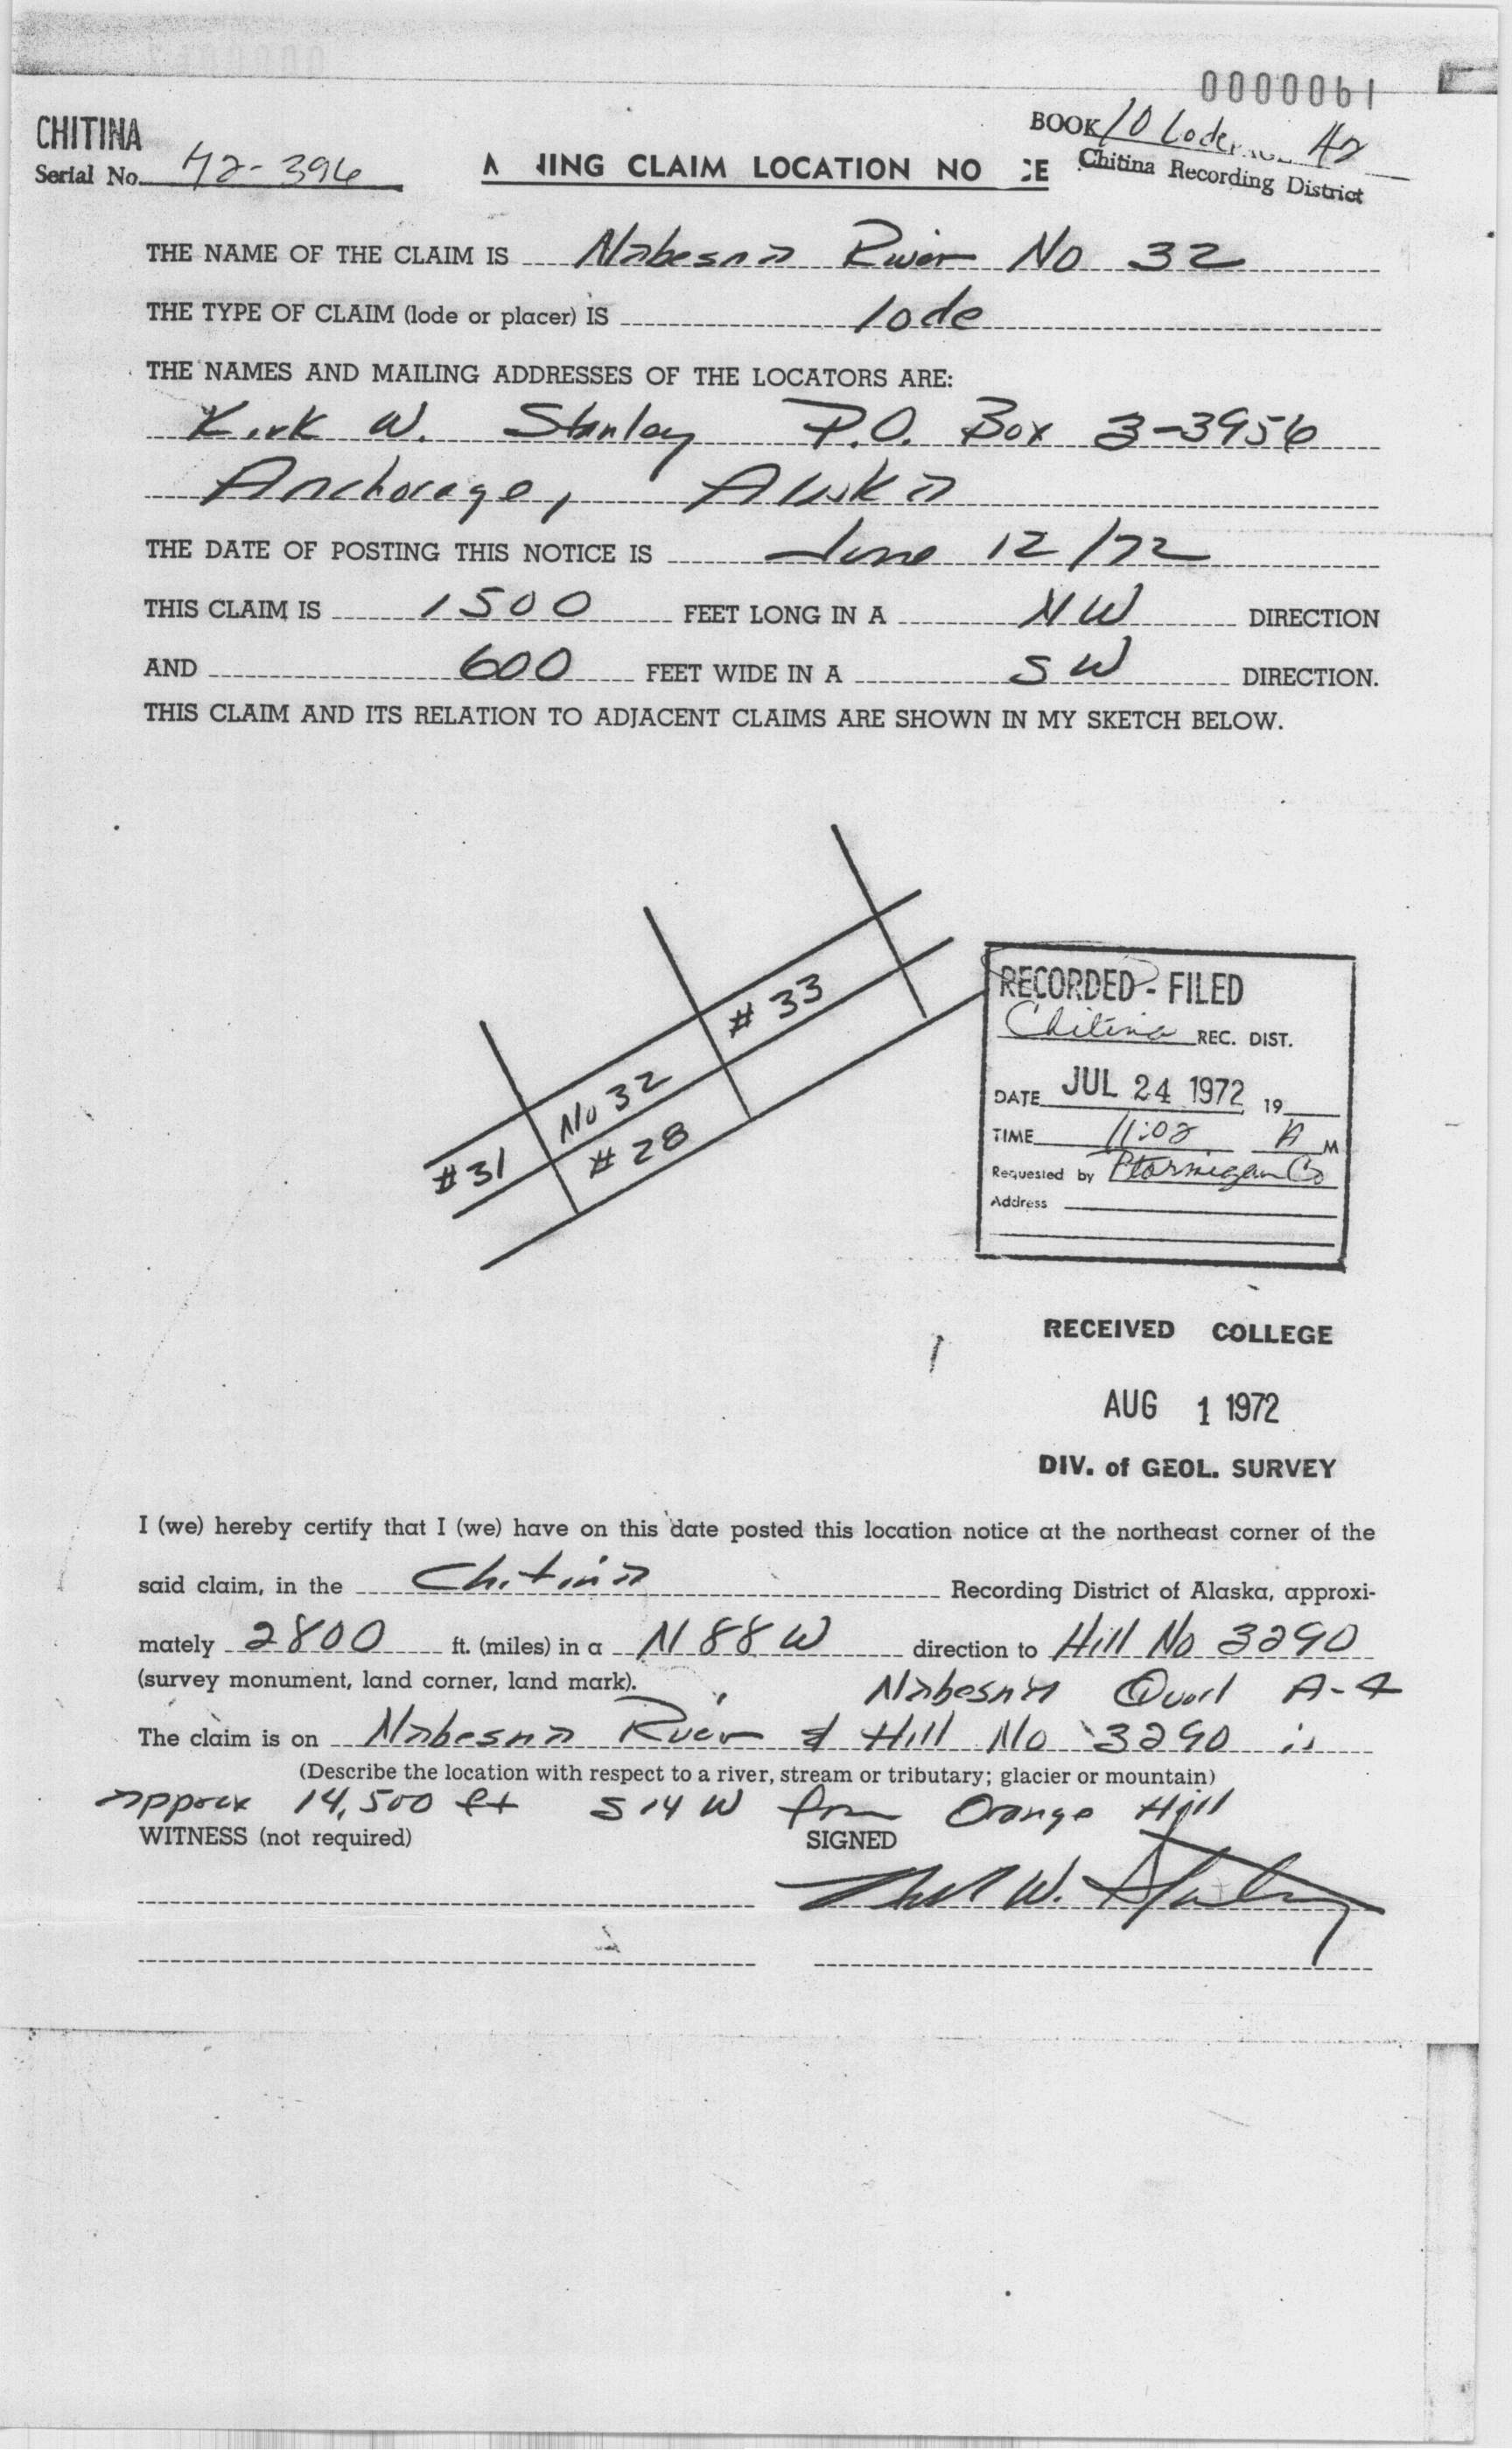 0000061
CHITINA
Serial No. 72-396
MINING CLAIM LOCATION NO CE
BOOK 10 Lode PAGE 42
Chitina Recording District
THE NAME OF THE CLAIM IS Nabesna River No 32
THE TYPE OF CLAIM (lode or placer) IS lode
THE NAMES AND MAILING ADDRESSES OF THE LOCATORS ARE:
Kirk W. Stanley P.O. Box 3-3956
Anchorage, Alaska
THE DATE OF POSTING THIS NOTICE IS June 12/72
THIS CLAIM IS 1500 FEET LONG IN A NW DIRECTION
AND 600 FEET WIDE IN A SW DIRECTION.
THIS CLAIM AND ITS RELATION TO ADJACENT CLAIMS ARE SHOWN IN MY SKETCH BELOW.
# 33
No 32
# 31
# 28
RECORDED - FILED
Chitina REC. DIST.
DATE JUL 24 1972 19
TIME 11:02 A M
Requested by Ptarmigan Co
Address
RECEIVED COLLEGE
AUG 1 1972
DIV. of GEOL. SURVEY
I (we) hereby certify that I (we) have on this date posted this location notice at the northeast corner of the
said claim, in the Chitina Recording District of Alaska, approxi-
mately 2800 ft. (miles) in a N 88 W direction to Hill No 3290
(survey monument, land corner, land mark). Nabesna Quad A-4
The claim is on Nabesna River & Hill No 3290 is
(Describe the location with respect to a river, stream or tributary; glacier or mountain)
approx 14,500 ft S 14 W from Orange Hill
WITNESS (not required) SIGNED
W. Stanley